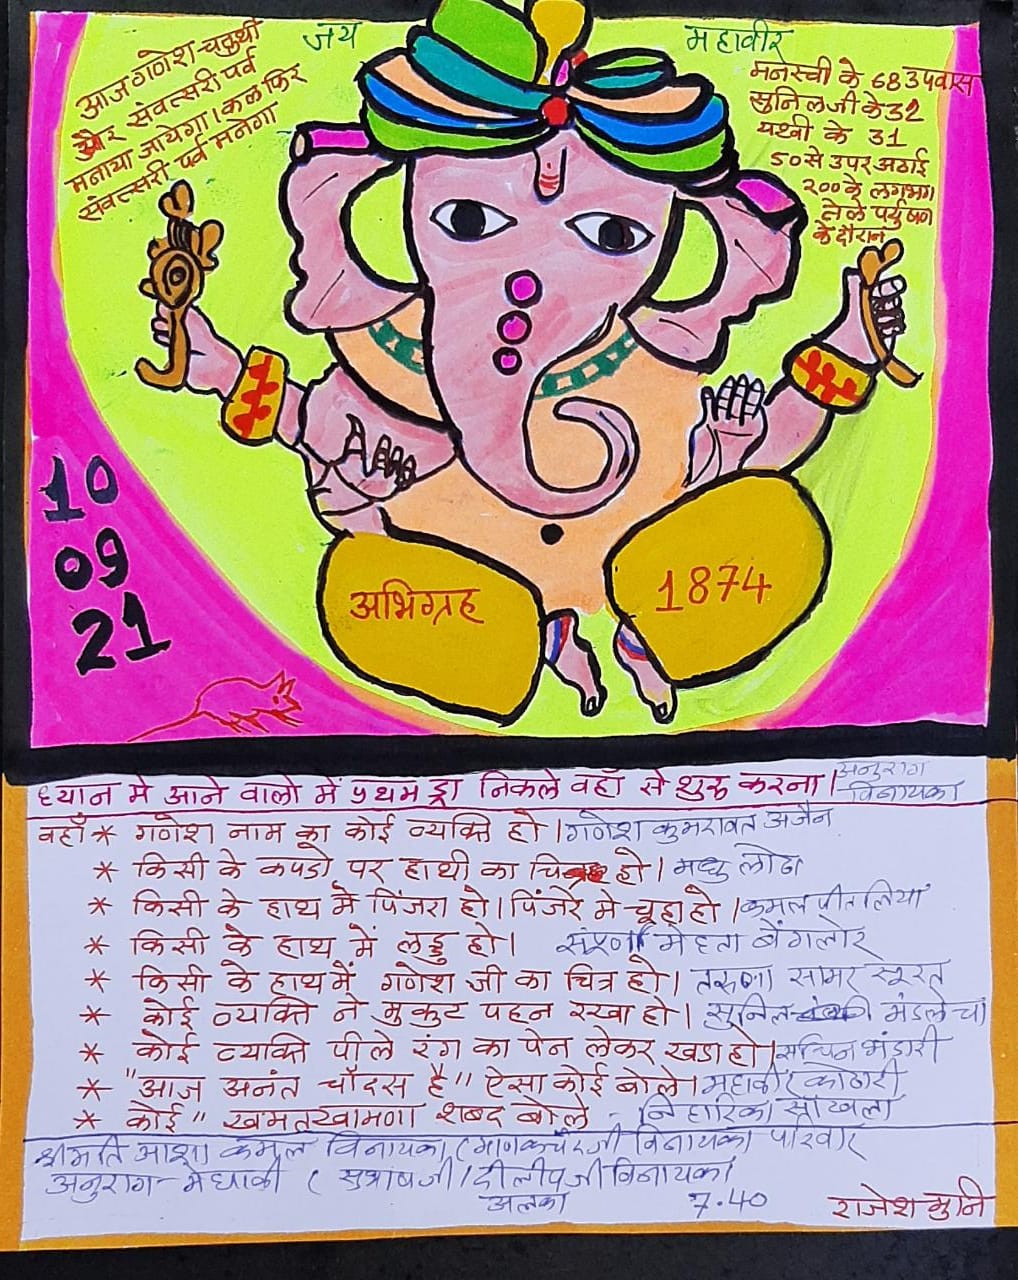 जय महावीर
आज गणेश चतुर्थी
और संवत्सरी पर्व
मनाया जायेगा। कल फिर
संवत्सरी पर्व मनेगा
मनस्वी के 68 उपवास
सुनिलजी के 32
पृथ्वी के 31
50 से उपर अठाई
२०० के लगभग
तेले पर्युषण
के दौरान
10
09
21
अभिग्रह
1874
ध्यान मे आने वालो में प्रथम ड्रा निकले वहाँ से शुरू करना। अनुराग विनायका
वहाँ * गणेश नाम का कोई व्यक्ति हो। गणेश कुमरावत अजैन
* किसी के कपडो पर हाथी का चित्र हो। मधु लोढा
* किसी के हाथ में पिंजरा हो। पिंजरे मे चूहा हो। कमल पीतलिया
* किसी के हाथ में लड्डु हो। संपूर्णा मेहता बेंगलोर
* किसी के हाथ में गणेश जी का चित्र हो। तरूणा सामर सूरत
* कोई व्यक्ति ने मुकुट पहन रखा हो। सुनिल मंडलेचा
* कोई व्यक्ति पीले रंग का पेन लेकर खडा हो। सचिन भंडारी
* "आज अनंत चौदस है" ऐसा कोई बोले। महावीर कोठारी
* कोई "खमतखामणा शब्द बोले - निहारिका सांखला
श्रीमति आशा कमल विनायका (माणकचंदजी विनायका परिवार
अनुराग - मेघाकी ( सुभाषजी / दीलीपजी विनायका
अलका 7.40
राजेश मुनि